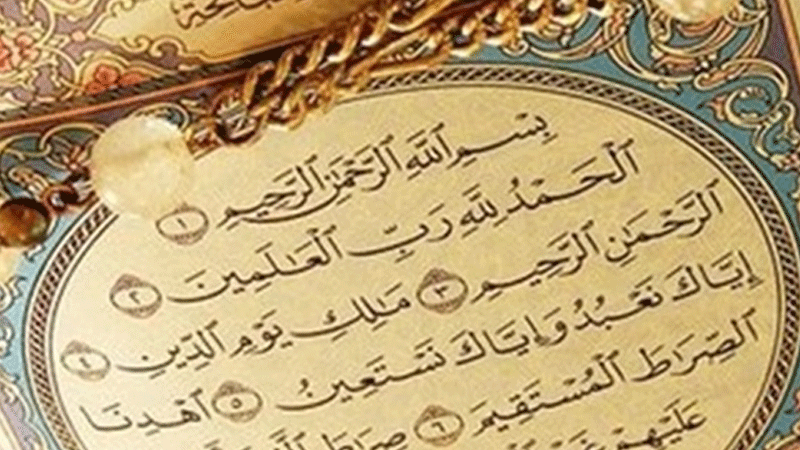 بِسْمِ ٱللَّهِ ٱلرَّحْمَٰنِ ٱلرَّحِيمِ ١
ٱلْحَمْدُ لِلَّهِ رَبِّ ٱلْعَٰلَمِينَ ٢
ٱلرَّحْمَٰنِ ٱلرَّحِيمِ ٣ مَٰلِكِ يَوْمِ ٱلدِّينِ ٤
إِيَّاكَ نَعْبُدُ وَإِيَّاكَ نَسْتَعِينُ ٥ ٱهْدِنَا
ٱلصِّرَٰطَ ٱلْمُسْتَقِيمَ ٦ صِرَٰطَ
عَلَيْهِمْ